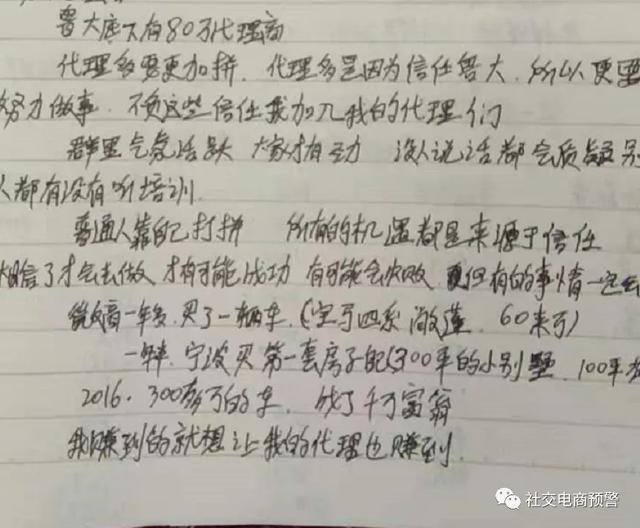 鲁大底下有80万代理商
代理多要更加拼. 代理多是因为信任鲁大, 所以更要
努力做事. 不负这些信任我加入我的代理们
群里气氛活跃 大家才有动 没人说话都会质疑别
人都有没有听培训.
普通人靠自己打拼 所有的机遇都是来源于信任
相信了才会去做 才有可能成功 有可能会失败 更但有的事情一定会
做 一年多. 买了一辆车. (宝马四系 敞篷. 60来万)
一年半. 宁波买第一套房子 300平的小别墅. 100平
2016. 300多万的车. 成了千万富翁
我赚到的就想让我的代理也赚到.
社交电商预警